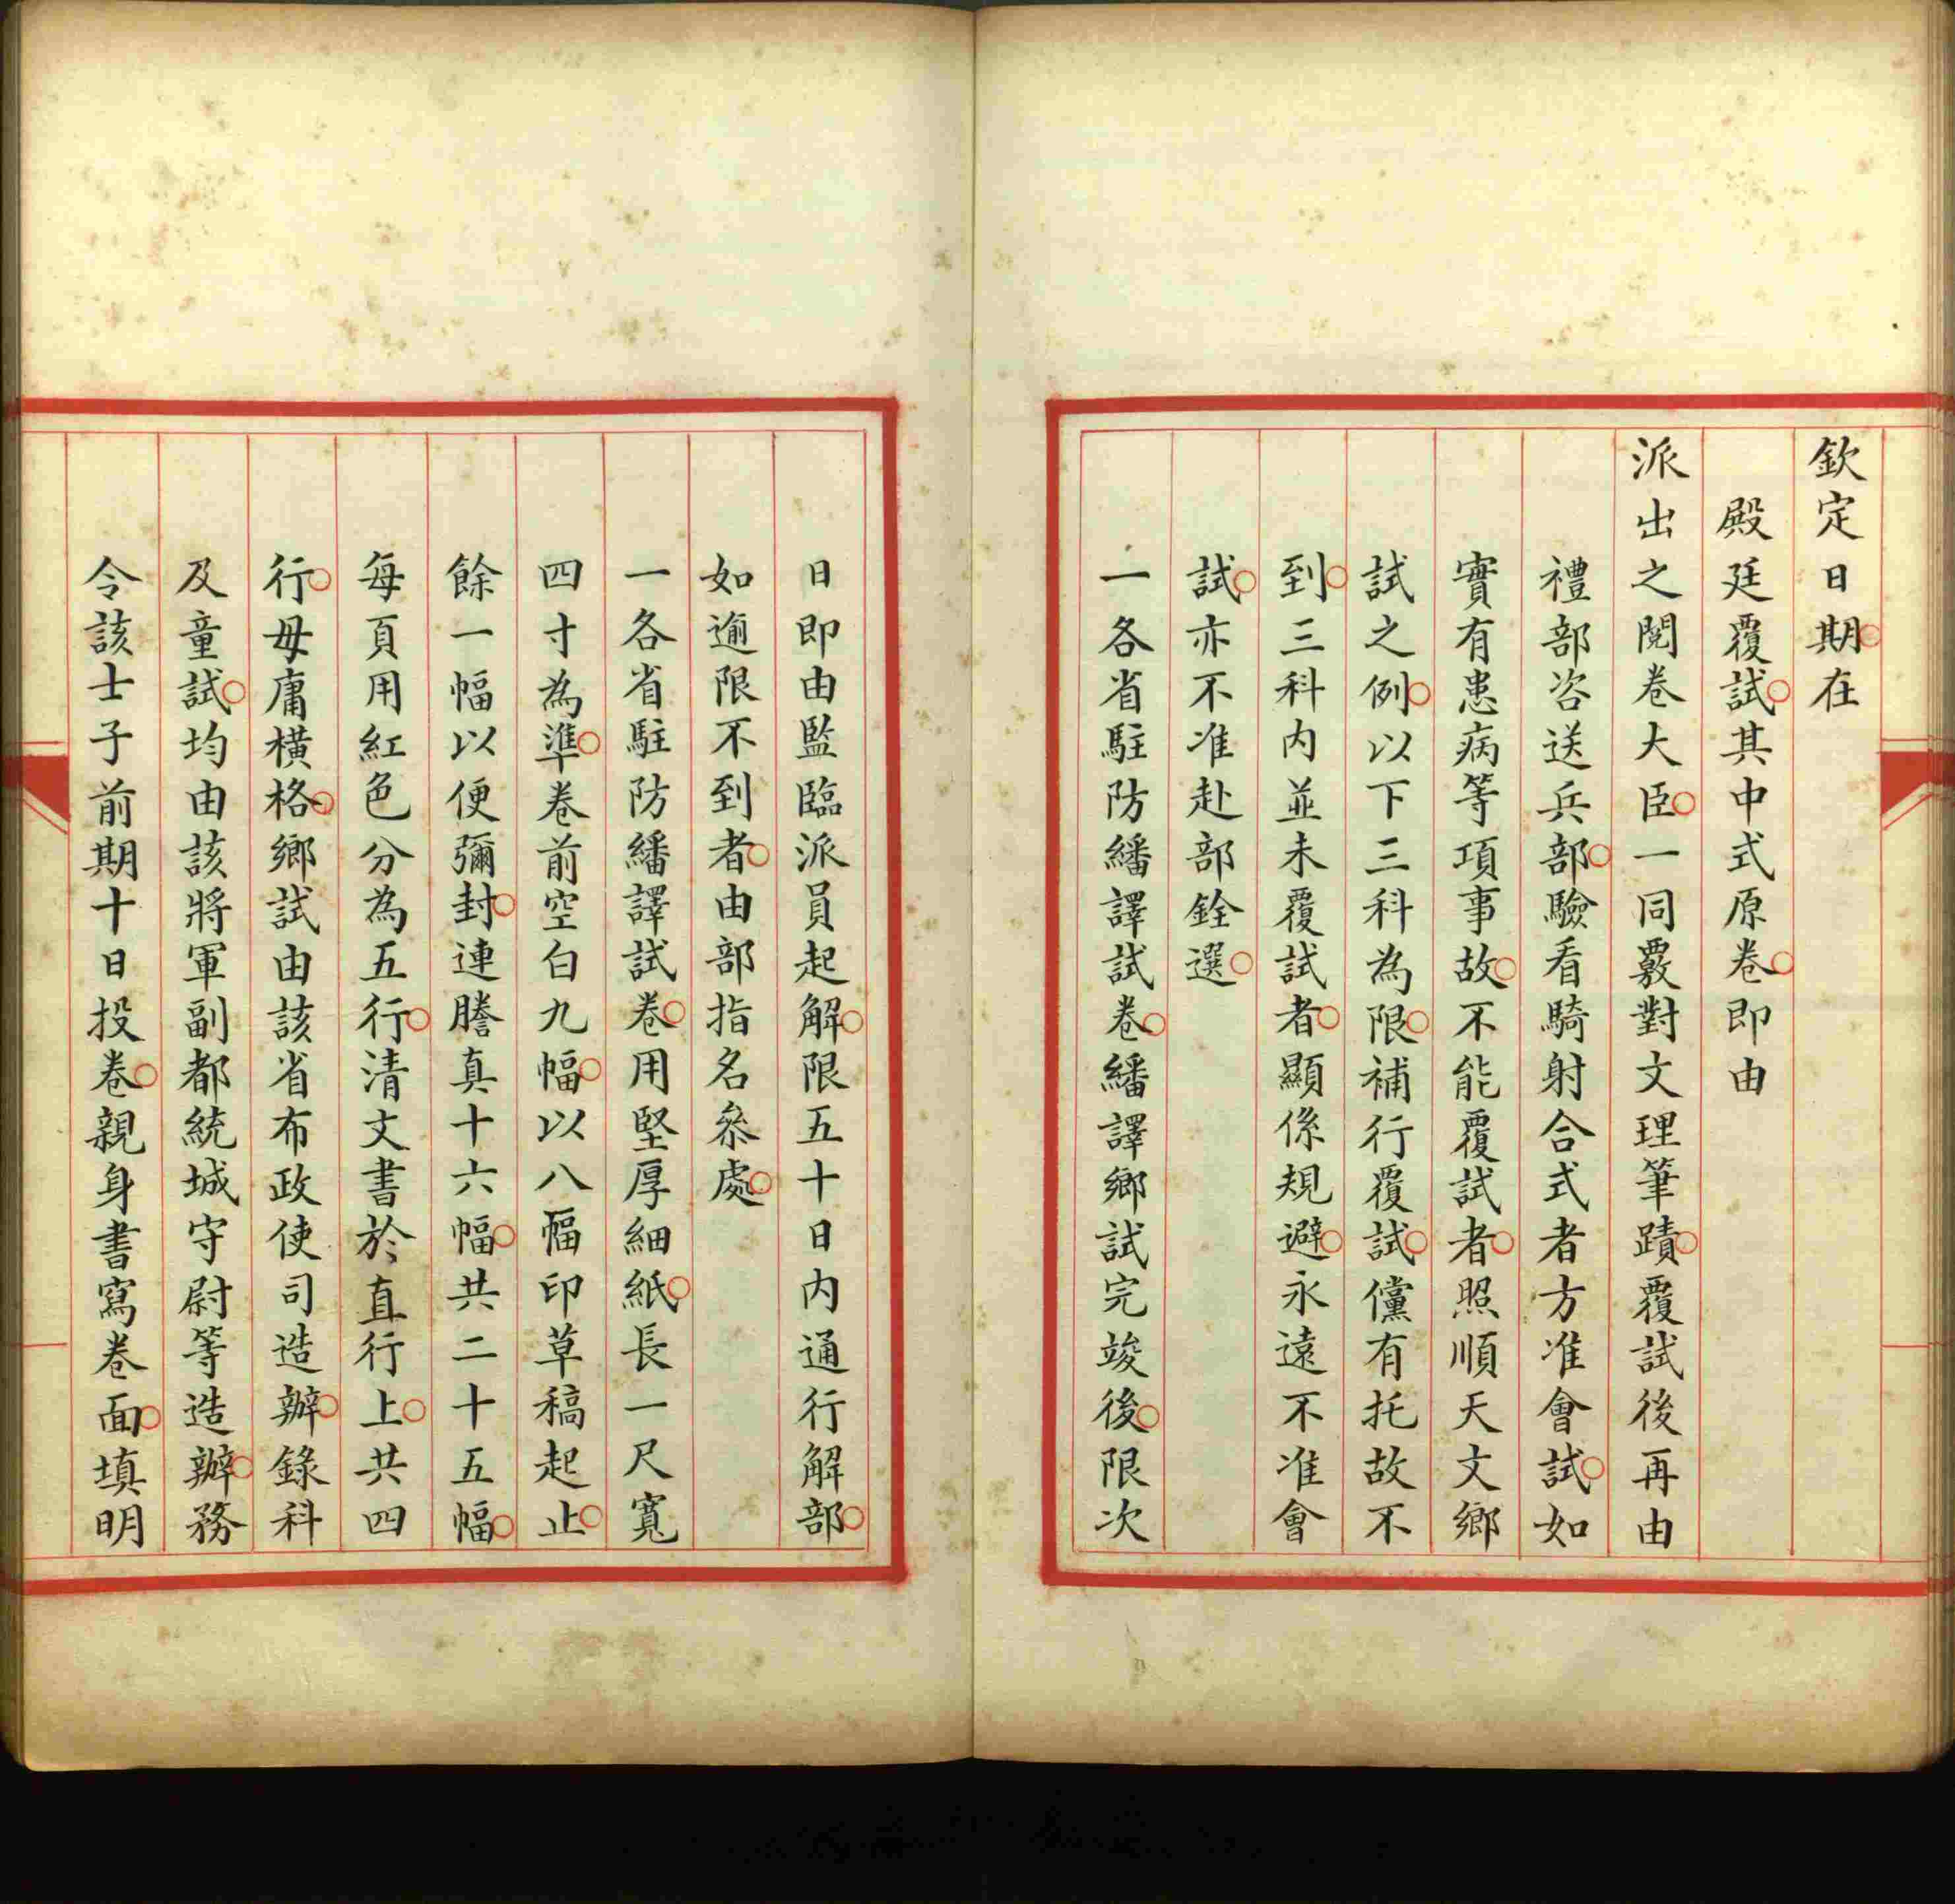 欽定日期在
殿廷覆試其中式原卷即由
派出之閱卷大臣一同覈對文理筆蹟覆試後再由
禮部咨送兵部驗看騎射合式者方准會試如
實有患病等項事故不能覆試者照順天文鄉
試之例以下三科為限補行覆試儻有托故不
到三科内並未覆試者顯係規避永遠不准會
試亦不准赴部銓選
一各省駐防繙譯試卷繙譯鄉試完竣後限次
日即由監臨派員起解限五十日内通行解部
如逾限不到者由部指名叅處
一各省駐防繙譯試卷用堅厚細紙長一尺寬
四寸為準卷前空白九幅以八幅印草稿起止
餘一幅以便彌封連謄真十六幅共二十五幅
每頁用紅色分為五行清文書於直行上共四
行毋庸橫格鄉試由該省布政使司造辦錄科
及童試均由該將軍副都統城守尉等造辦務
令該士子前期十日投卷親身書寫卷面填明